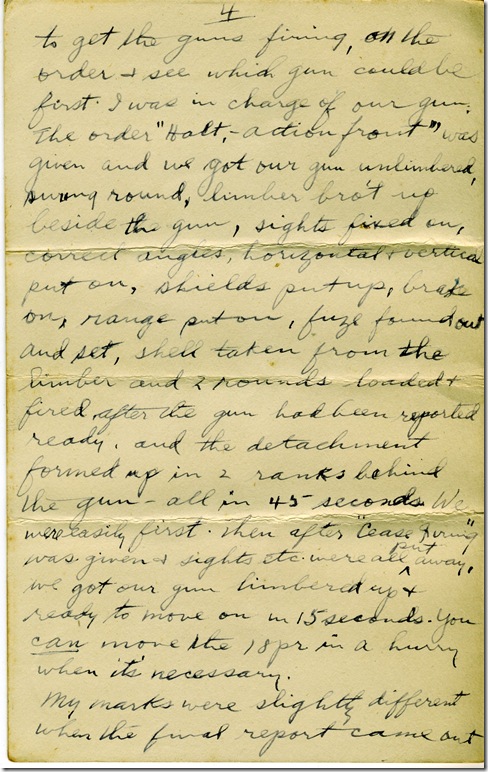 4
to get the guns firing, on the
order & see which gun could be
first. I was in charge of our gun.
The order "Halt, - action front", was
given and we got our gun unlimbered,
swung round, limber bro't up
beside the gun, sights fixed on,
correct angles, horizontal & vertical
put on, shields put up, brake
on, range put on, fuze found out
and set, shell taken from the
limber and 2 rounds loaded &
fired, after the gun had been reported
ready. and the detachment
formed up in 2 ranks behind
the gun - all in 45 seconds. We
were easily first. Then after "Cease firing"
was given & sights etc. were all put away,
we got our gun limbered up &
ready to move on in 15 seconds. You
can move the 18pr in a hurry
when it's necessary.
My marks were slightly different
when the final report came out